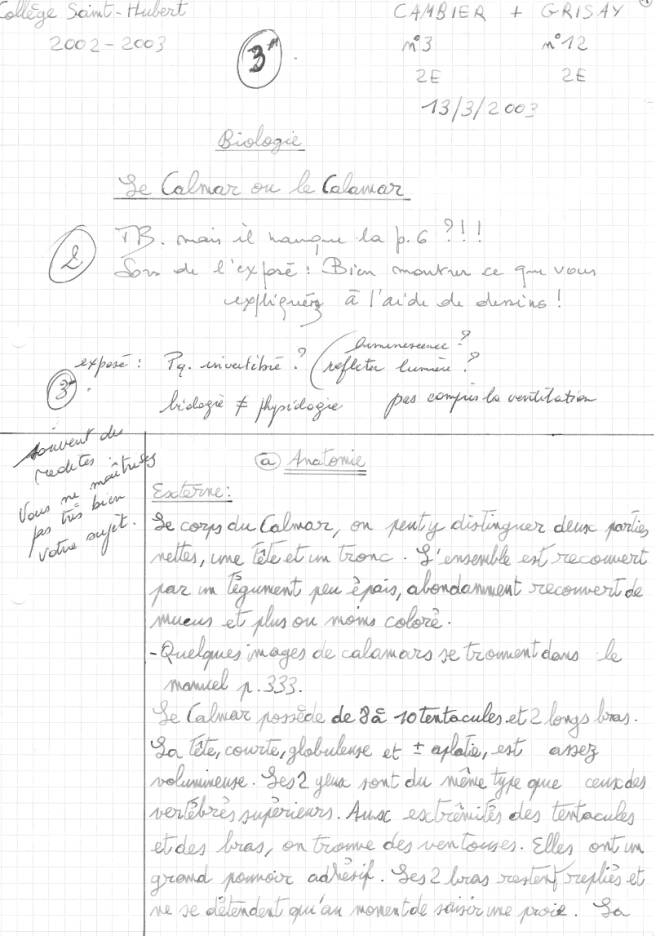 Collège Saint-Hubert
CAMBIER + GRISAY
2002-2003
n°3 n°12
2E 2E
13/3/2003
Biologie
Le Calmar ou le Calamar
2
TB. mais il manque la p.6 ?!!!
Lors de l'exposé : Bien montrer ce que vous
expliquez à l'aide de dessins !
exposé : Pq. invertébré ? (luminescence ?
refléter lumière ?
3
biologie ≠ physiologie pas compris la ventilation
souvent des
redites
Vous ne maîtrisez
pas très bien
votre sujet.
a Anatomie
Externe :
Le corps du Calmar, on peut y distinguer deux parties
nettes, une tête et un tronc. L'ensemble est recouvert
par un tégument peu épais, abondamment recouvert de
mucus et plus ou moins coloré.
- Quelques images de calamars se trouvent dans le
manuel p.333.
Le Calmar possède de 8 à 10 tentacules et 2 longs bras.
La tête, courte, globuleuse et ± aplatie, est assez
volumineuse. Les 2 yeux sont du même type que ceux des
vertébrés supérieurs. Aux extrêmités des tentacules
et des bras, on trouve des ventouses. Elles ont un
grand pouvoir adhésif. Les 2 bras restent repliés et
ne se détendent qu'au moment de saisir une proie. La